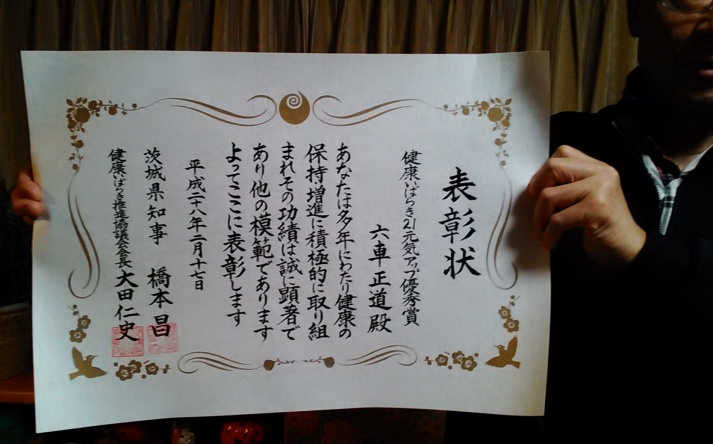 表彰状
健康いばらき21元気アップ優秀賞
六車正道殿
あなたは多年にわたり健康の
保持増進に積極的に取り組
まれその功績は誠に顕著で
あり他の模範であります
よってここに表彰します
平成二八年二月十七日
茨城県知事 橋本昌
健康いばらき推進協議会会長 大田仁史